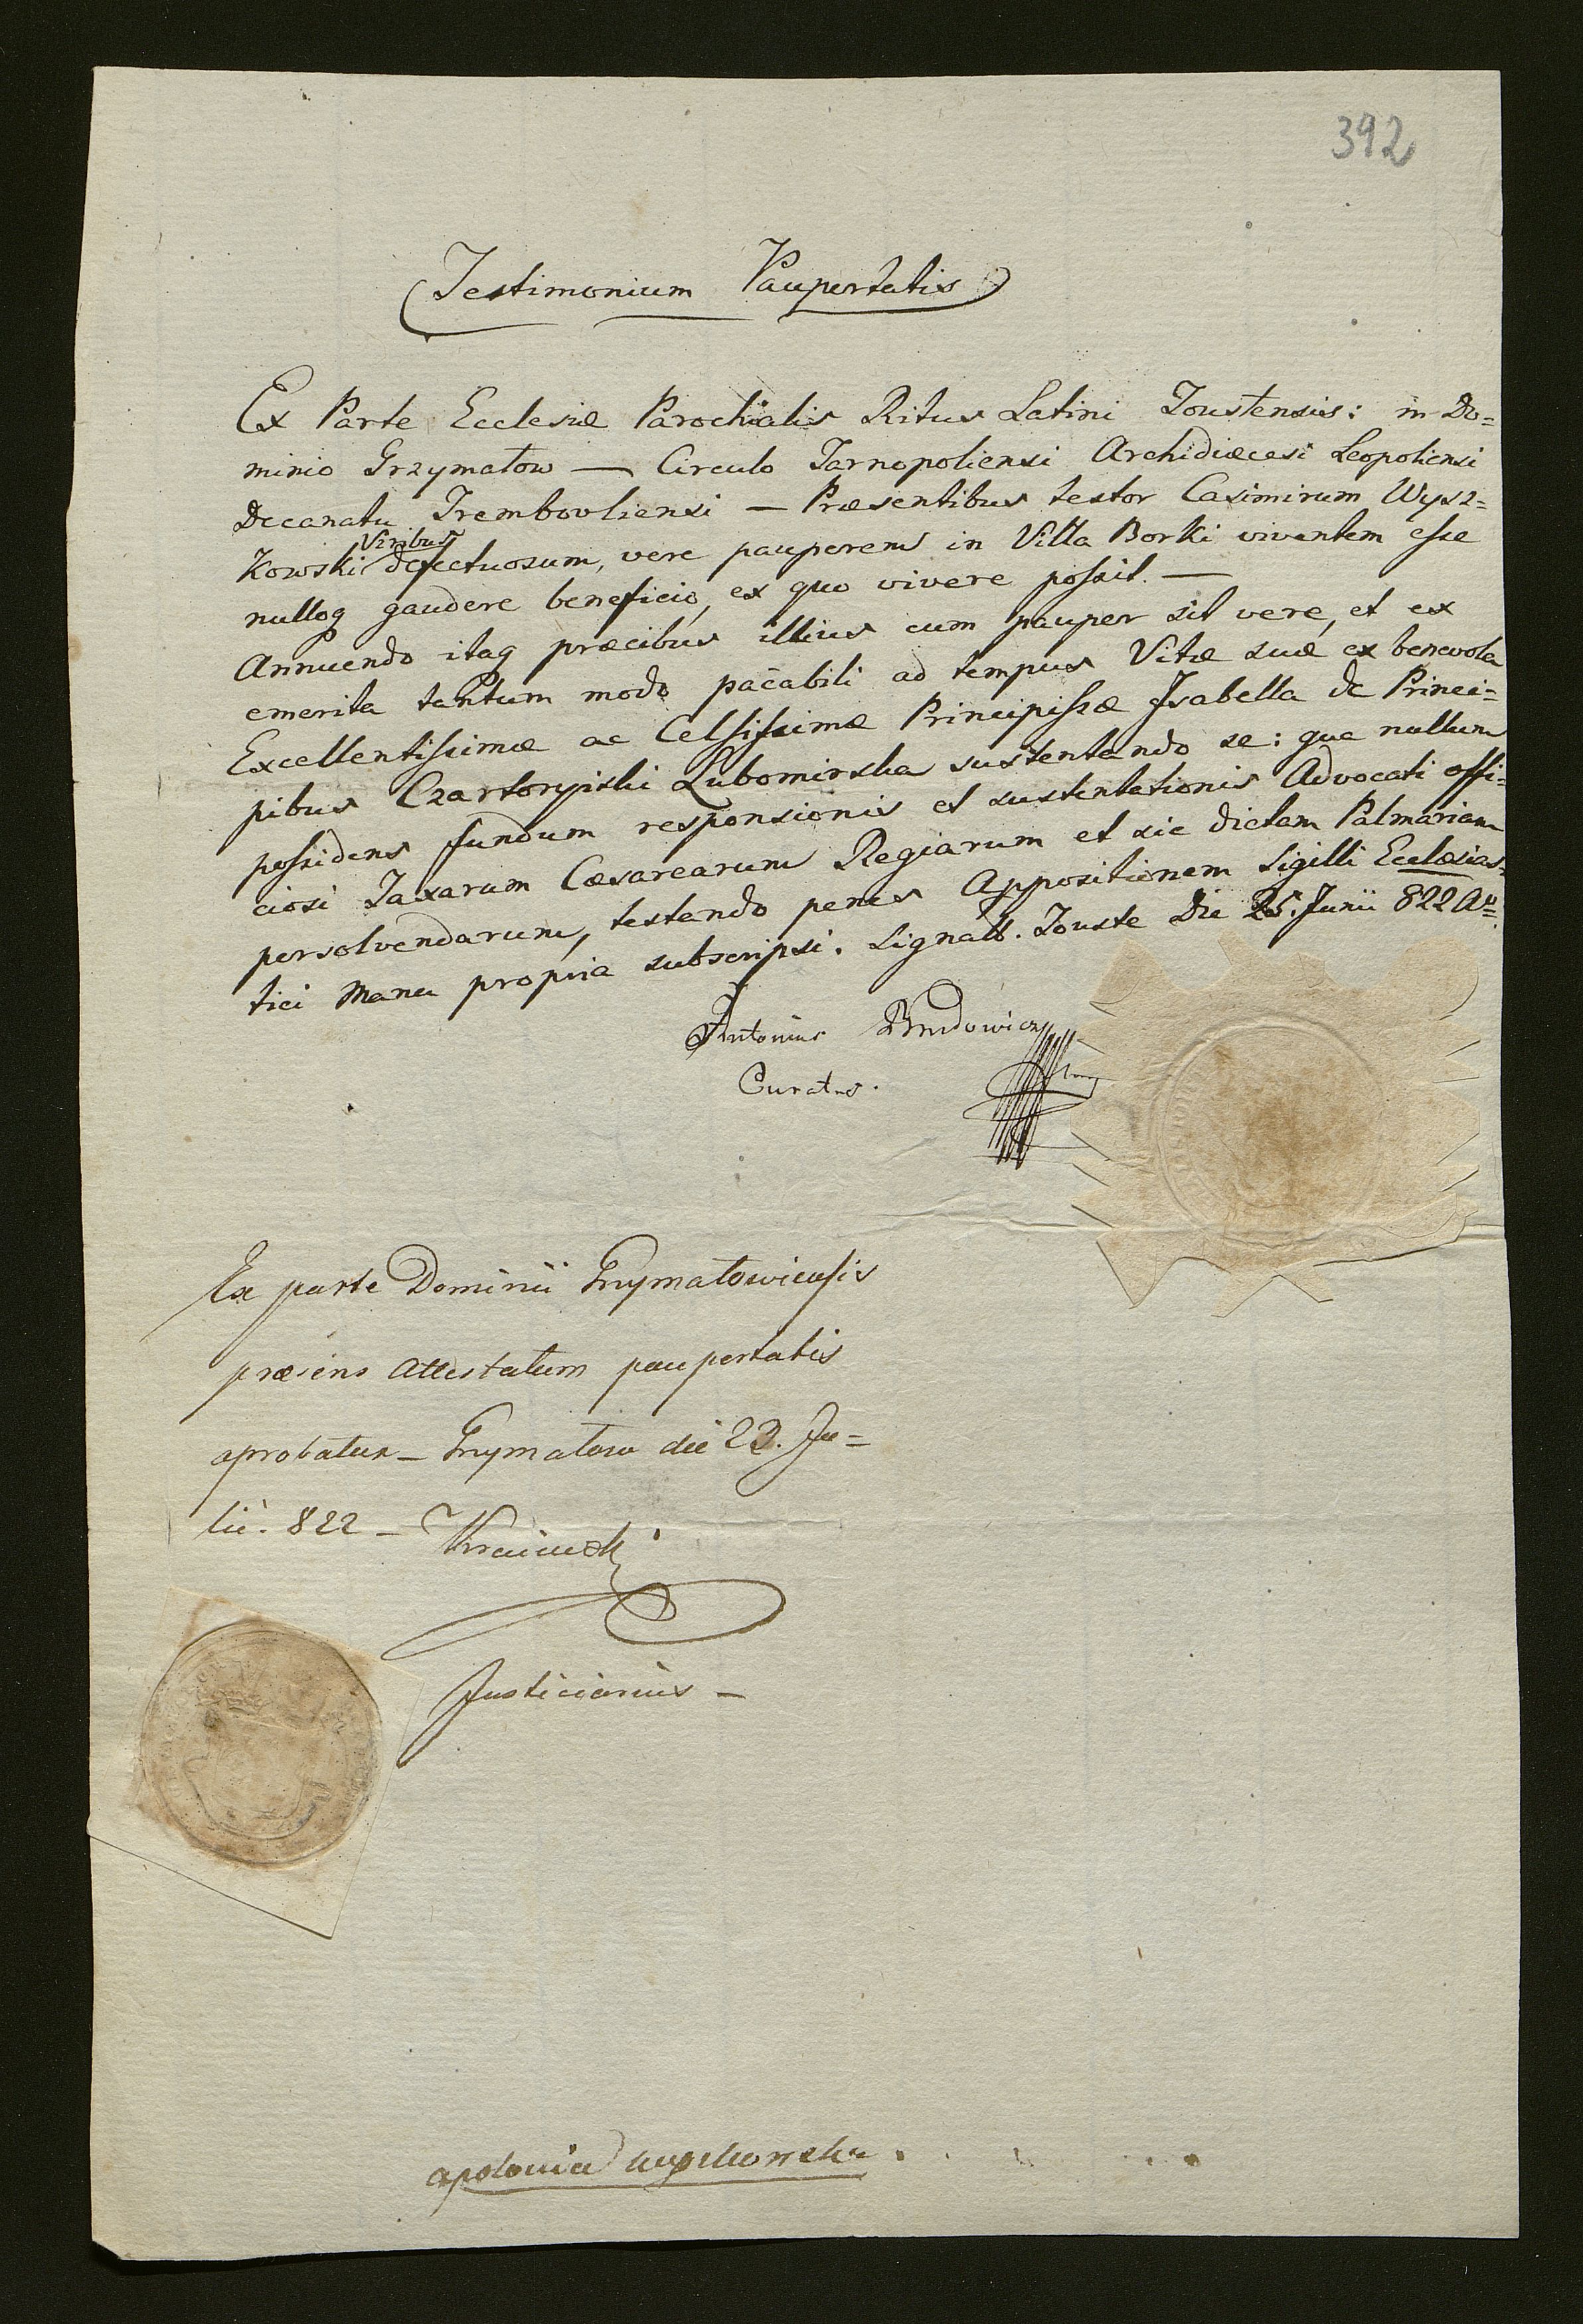 392
Testimonium Paupertatis
Ex Parte Ecclesiæ Parochialis Ritus Latini Toustensis: in Do=
minio Grzymałow — Circulo Tarnopoliensi Archidiæcesi Leopoliensi
Decanatu Trembovliensi — Præsentibus testor Casimirum Wysz=
Viribus
kowski defectuosum, vere pauperem in Villa Borki viventem esse
nulloq gaudere beneficio, ex quo vivere possit. —
Annuendo itaq præcibus illius cum pauper sit vere, et ex
emerita tantum modo pacabili ad tempus Vitæ suæ ex benevola
Excellentissimæ ac Celsissimæ Principissæ Isabella de Princi=
pibus Czartoryiski Lubomirska sustentando se: qua nullum
possidens fundum responsionis et sustentationis Advocati offi=
ciosi Taxarum Cæsarearum Regiarum et sic dictam Palmariam
persolvendarum, testando penes Appositionem Sigilli Ecclesias=
tici Manu propria subscripsi. Signatt. Touste Die 25. Junii 822 A
Antonius
Curatus.
Ex parte Dominii Grzymałowiensis
præsens Attestatum paupertatis
aprobatur — Grzymałow die 23. Ju=
lii. 822 —
Justiciarius —
apolonia